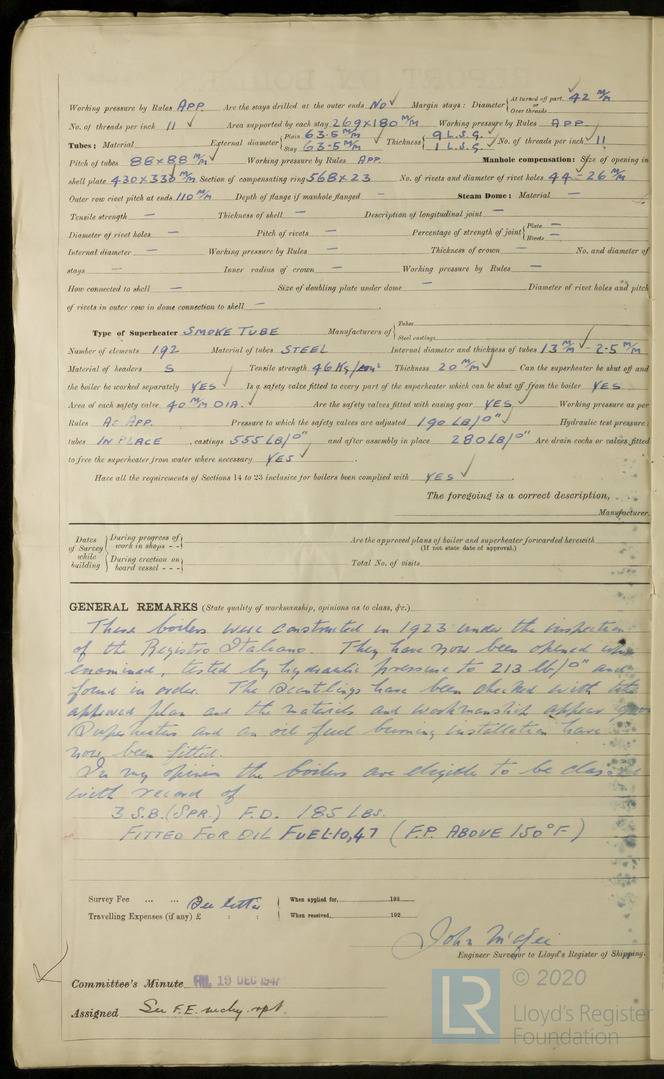 Working pressure by Rules APP. Are the stays drilled at the outer ends No ✓ Margin stays: Diameter { At turned off part. or Over threads 42 M/M ✓
No. of threads per inch 11 ✓ Area supported by each stay 269×180 M/M ✓ Working pressure by Rules APP.
Tubes: Material External diameter { Plain 63·5 M/M ✓ Stay 63·5 M/M Thickness { 9 L.S.G. ✓ 1 L.S.G. ✓ No. of threads per inch ✓ 11
Pitch of tubes 88×88 M/M ✓ Working pressure by Rules APP. Manhole compensation: Size of opening in
shell plate 430×330 M/M Section of compensating ring 568×23 No. of rivets and diameter of rivet holes 44 – 26 M/M
Outer row rivet pitch at ends 110 M/M Depth of flange if manhole flanged – Steam Dome: Material –
Tensile strength – Thickness of shell – Description of longitudinal joint –
Diameter of rivet holes – Pitch of rivets – Percentage of strength of joint { Plate – Rivets –
Internal diameter – Working pressure by Rules – Thickness of crown – No. and diameter of
stays – Inner radius of crown – Working pressure by Rules –
How connected to shell – Size of doubling plate under dome – Diameter of rivet holes and pitch
of rivets in outer row in dome connection to shell –
Type of Superheater SMOKE TUBE Manufacturers of { Tubes Steel castings
Number of elements 192 Material of tubes STEEL Internal diameter and thickness of tubes 13 M/M ✓ 2·5 M/M
Material of headers S ✓ Tensile strength 46 Kg/mm² Thickness 20 M/M ✓ Can the superheater be shut off and
the boiler be worked separately YES ✓ Is a safety valve fitted to every part of the superheater which can be shut off from the boiler YES
Area of each safety valve 40 M/M DIA. Are the safety valves fitted with easing gear YES ✓ Working pressure as per
Rules AS APP. Pressure to which the safety valves are adjusted 190 LB/□" ✓ Hydraulic test pressure:
tubes IN PLACE , castings 555 LB/□" and after assembly in place 280 LB/□" Are drain cocks or valves fitted
to free the superheater from water where necessary YES ✓
Have all the requirements of Sections 14 to 23 inclusive for boilers been complied with YES ✓
The foregoing is a correct description,
Manufacturer.
Dates of Survey while building { During progress of work in shops - - During erection on board vessel - - - Are the approved plans of boiler and superheater forwarded herewith
(If not state date of approval.)
Total No. of visits
GENERAL REMARKS (State quality of workmanship, opinions as to class, &c.)
These boilers were constructed in 1923 under the inspection
of the Registro Italiano. They have now been opened
examined, tested by hydraulic pressure to 213 lb/□" and
found in order. The scantlings have been checked with
approved plan and the materials and workmanship appear
Superheaters and an oil fuel burning installation have
now been fitted.
In my opinion the boilers are eligible to be
with record of
3 S.B. (SPR.) F.D. 185 LBS.
FITTED FOR OIL FUEL 10,47 (F.P. ABOVE 150°F)
Survey Fee ... ... See letter When applied for, 192
Travelling Expenses (if any) £ : : When received, 192
John McGei
Engineer Surveyor to Lloyd's Register of Shipping.
Committee's Minute FRI. 19 DEC 1947
Assigned See F.E. mchy. rpt.
LR © 2020
Lloyd's Register
Foundation